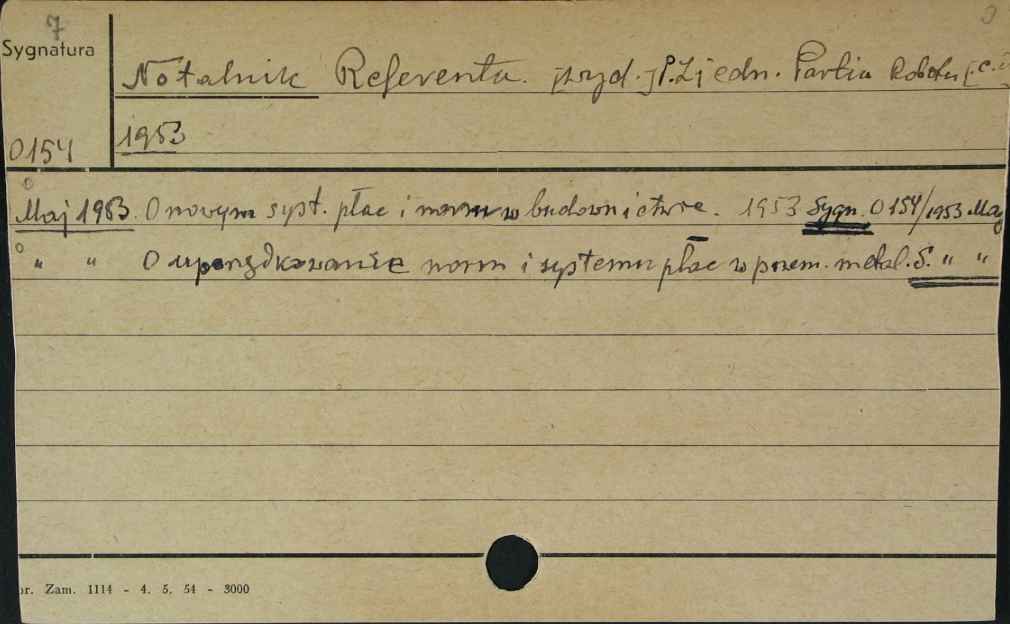 7
Sygnatura
Notatnik Referenta. P. Zjedn. Partia Robotn.
1953
0154
Maj 1953. O nowym syst. płac i norm w budownictwie. 1953 Sygn. 0154/1953 Maj
" " O uporządkowanie norm i systemu płac w przem. metal. S. " "
Zam. 1114 - 4. 5. 54 - 3000